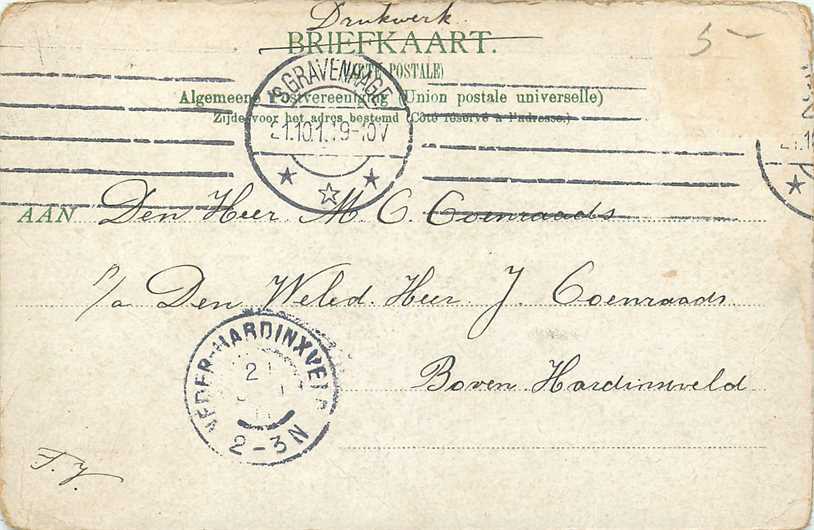 Drukwerk.
5-
BRIEFKAART.
(CARTE POSTALE)
Algemeene Postvereeniging (Union postale universelle)
Zijde voor het adres bestemd (Côté réservé à l'adresse.)
'S GRAVENHAGE
21.10.1. 9-10V
AAN Den Heer M. C. Coenraads
p/a Den Weled. Heer J. Coenraads
Boven Hardinxveld
NEDER-HARDINXVELD
2-3N